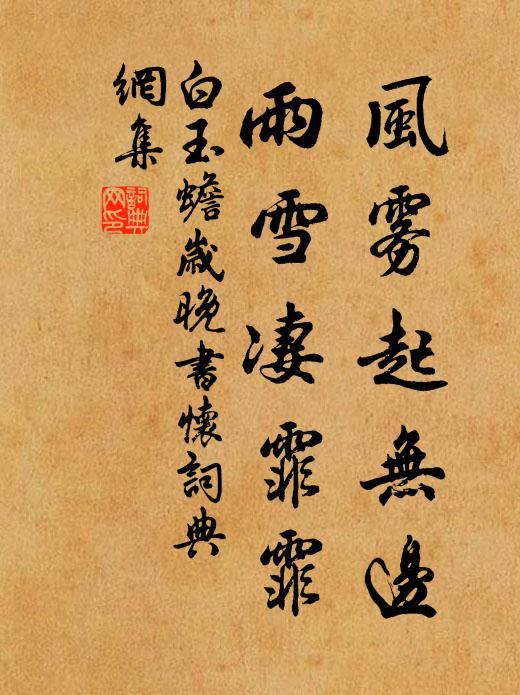 風雾起無邊
雨雪凄霏霏
白玉蟾歲晚書懷詞典
網集
詞典
网印